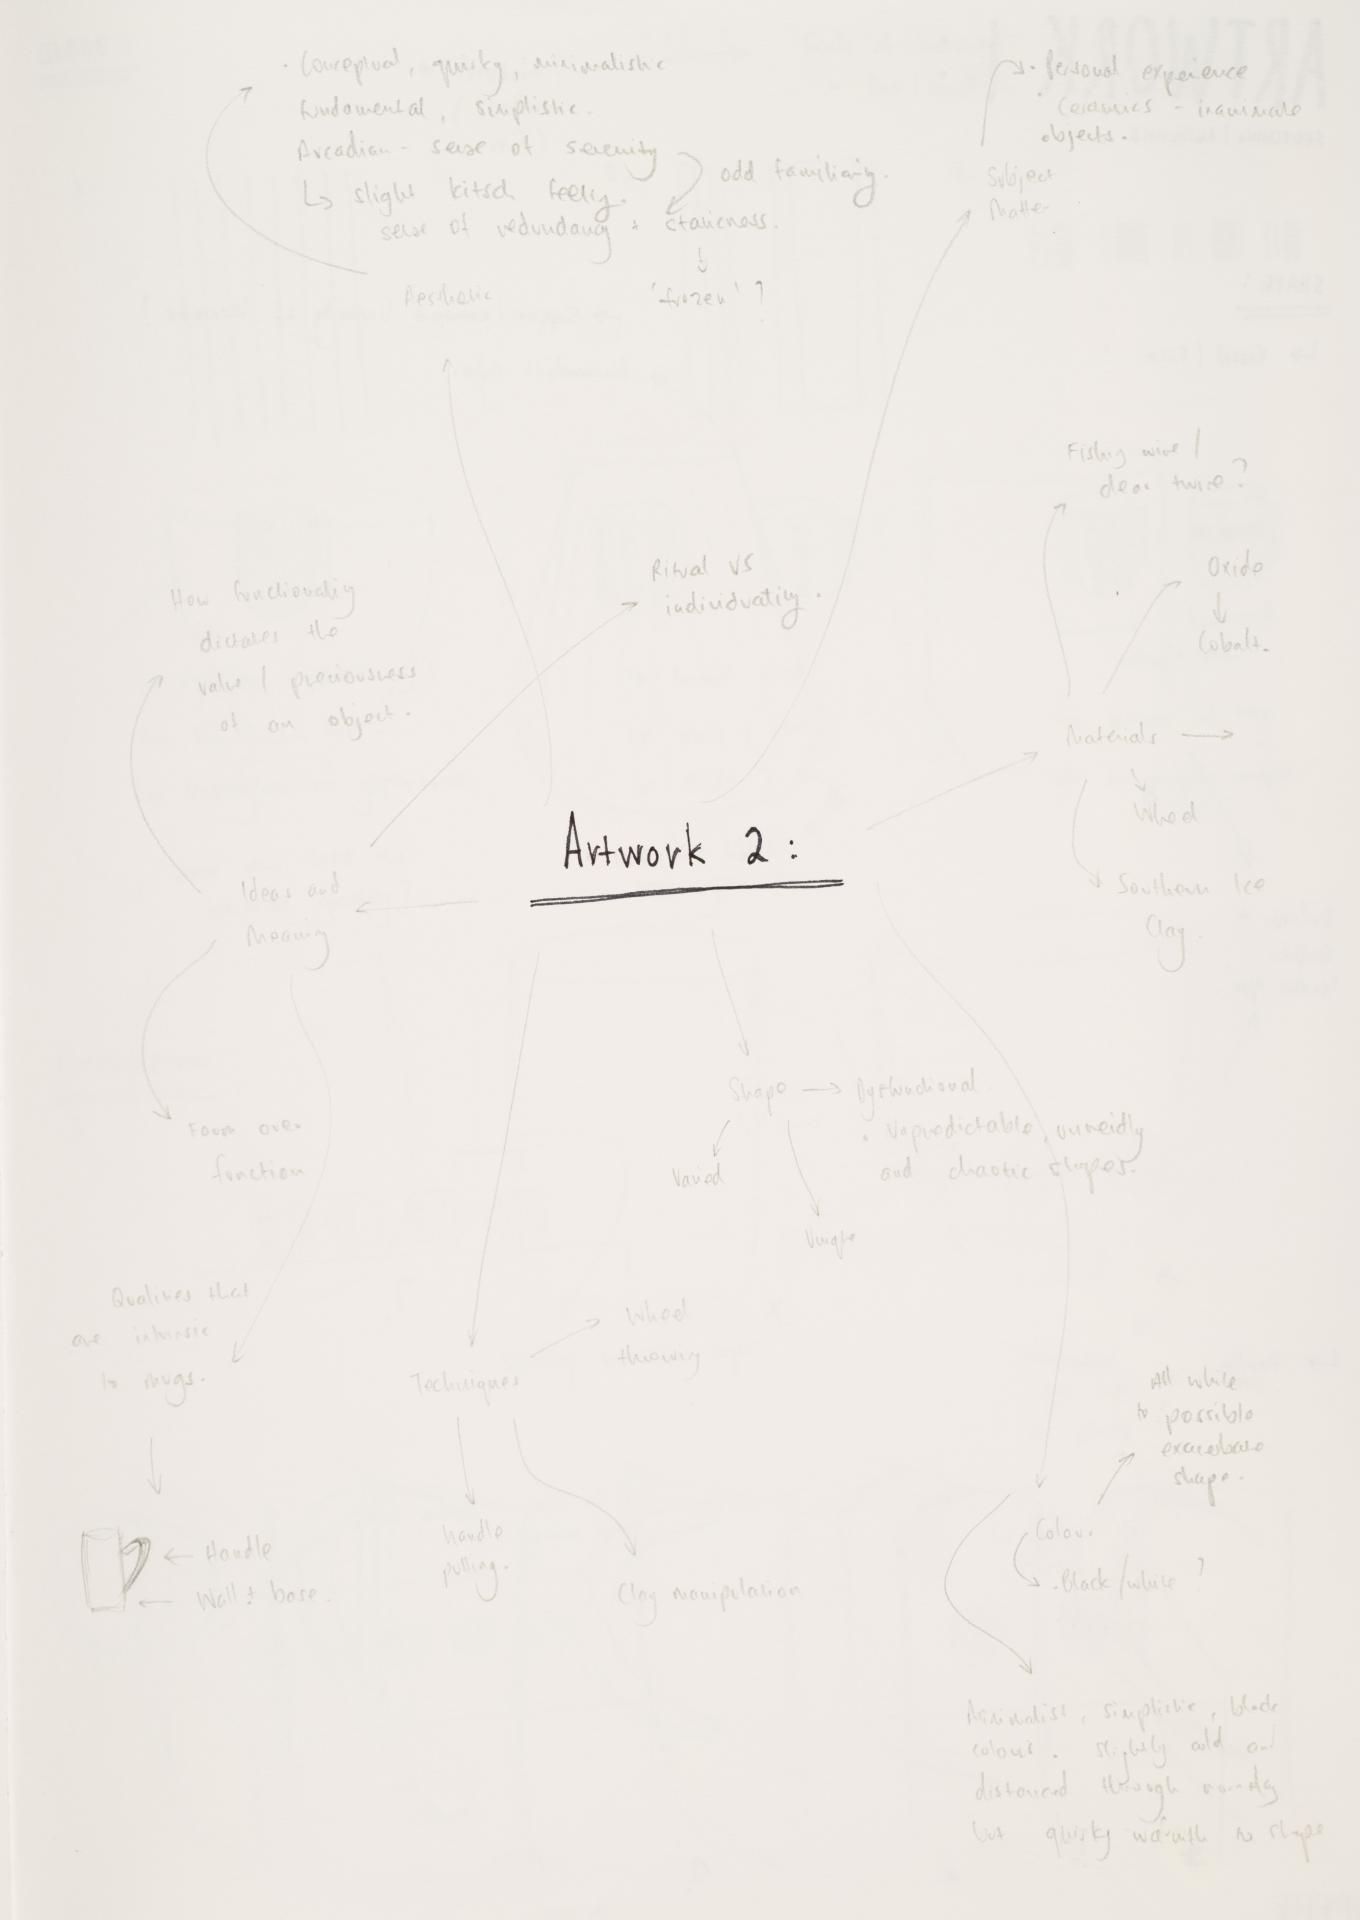 · Conceptual, quirky, minimalistic
fundamental, simplistic.
Arcadian - sense of serenity
↳ slight kitsch feeling.
sense of redundancy + staticness.
odd familiarity.
'frozen' ?
Aesthetic
· Personal experience
· Ceramics - inanimate
objects.
Subject
Matter
Fishing wire /
clear twine?
Oxide
Cobalt.
Materials
Wheel
Southern Ice
Clay.
Ritual vs
individuality.
How functionality
dictates the
value / preciousness
of an object.
Artwork 2:
Ideas and
Meaning
Form over
function
Qualities that
are intrinsic
to mugs.
Handle
Wall + base.
Shape
Dysfunctional.
· Unpredictable, unweidly
and chaotic shapes.
Varied
Unique
Techniques
Wheel
throwing
handle
pulling.
Clay manipulation
All white
to possible
exacerbate
shape.
Colour
· Black/white ?
Minimalist, simplistic, block
colour. slightly cold and
distanced through
but quirky warmth in shape